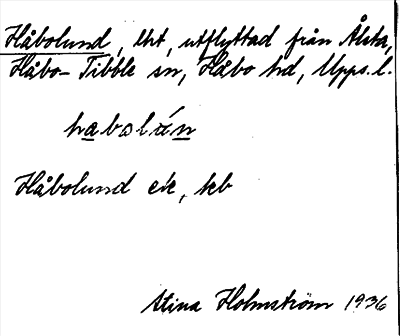 Håbolund, lht, utflyttad från Ålsta,
Håbo-Tibble sn, Håbo hd, Upps. l.
habolún
Håbolund ek, kb
Stina Holmström 1936